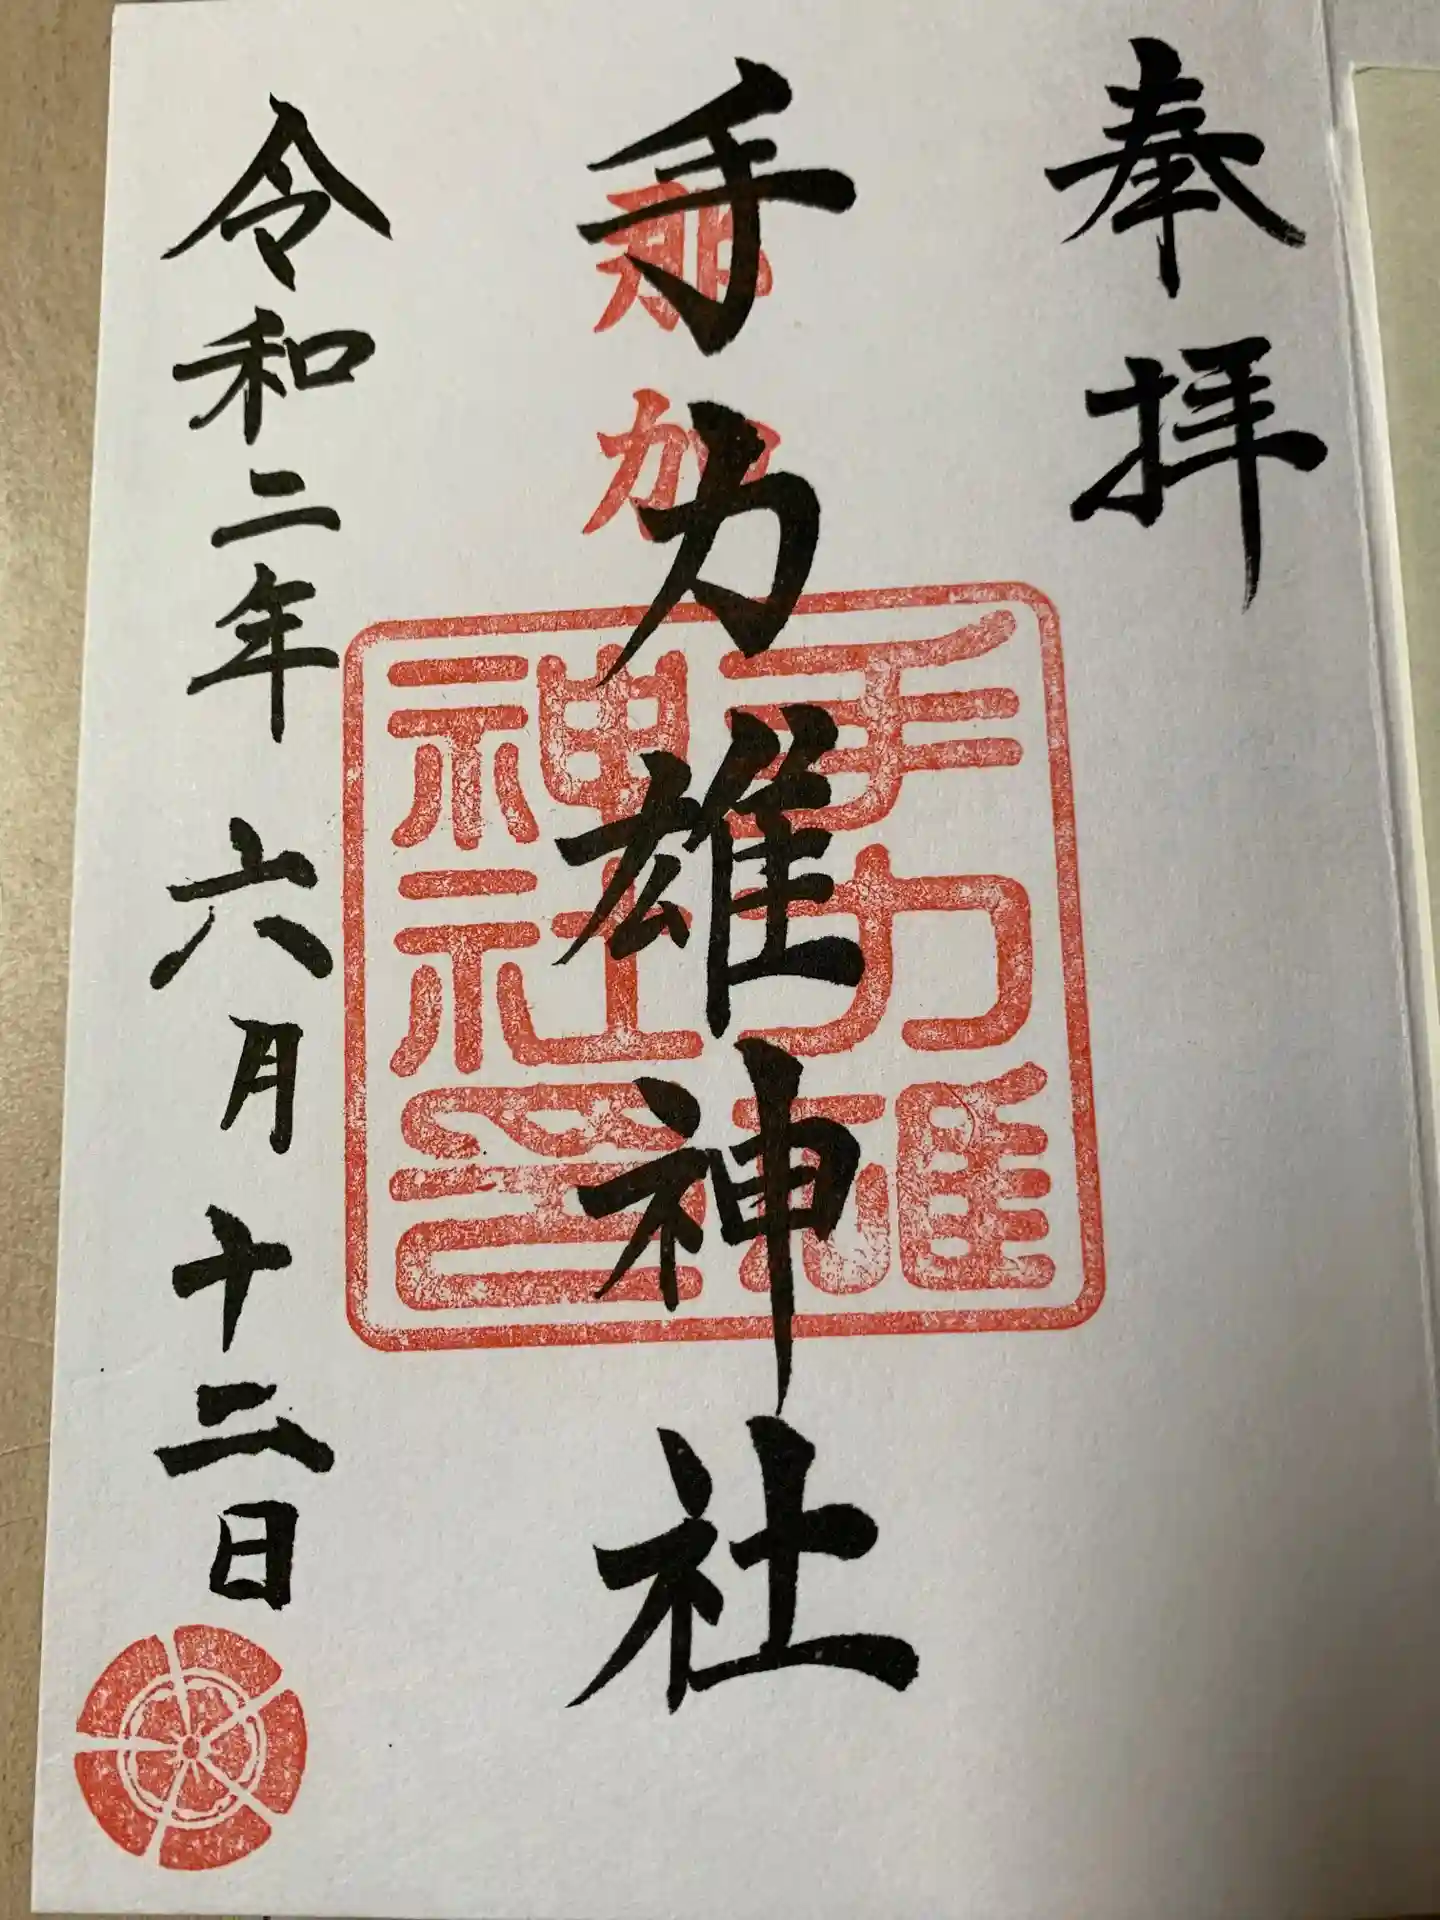 奉拝
手力雄神社
那加
手力雄神社印
令和二年六月十二日